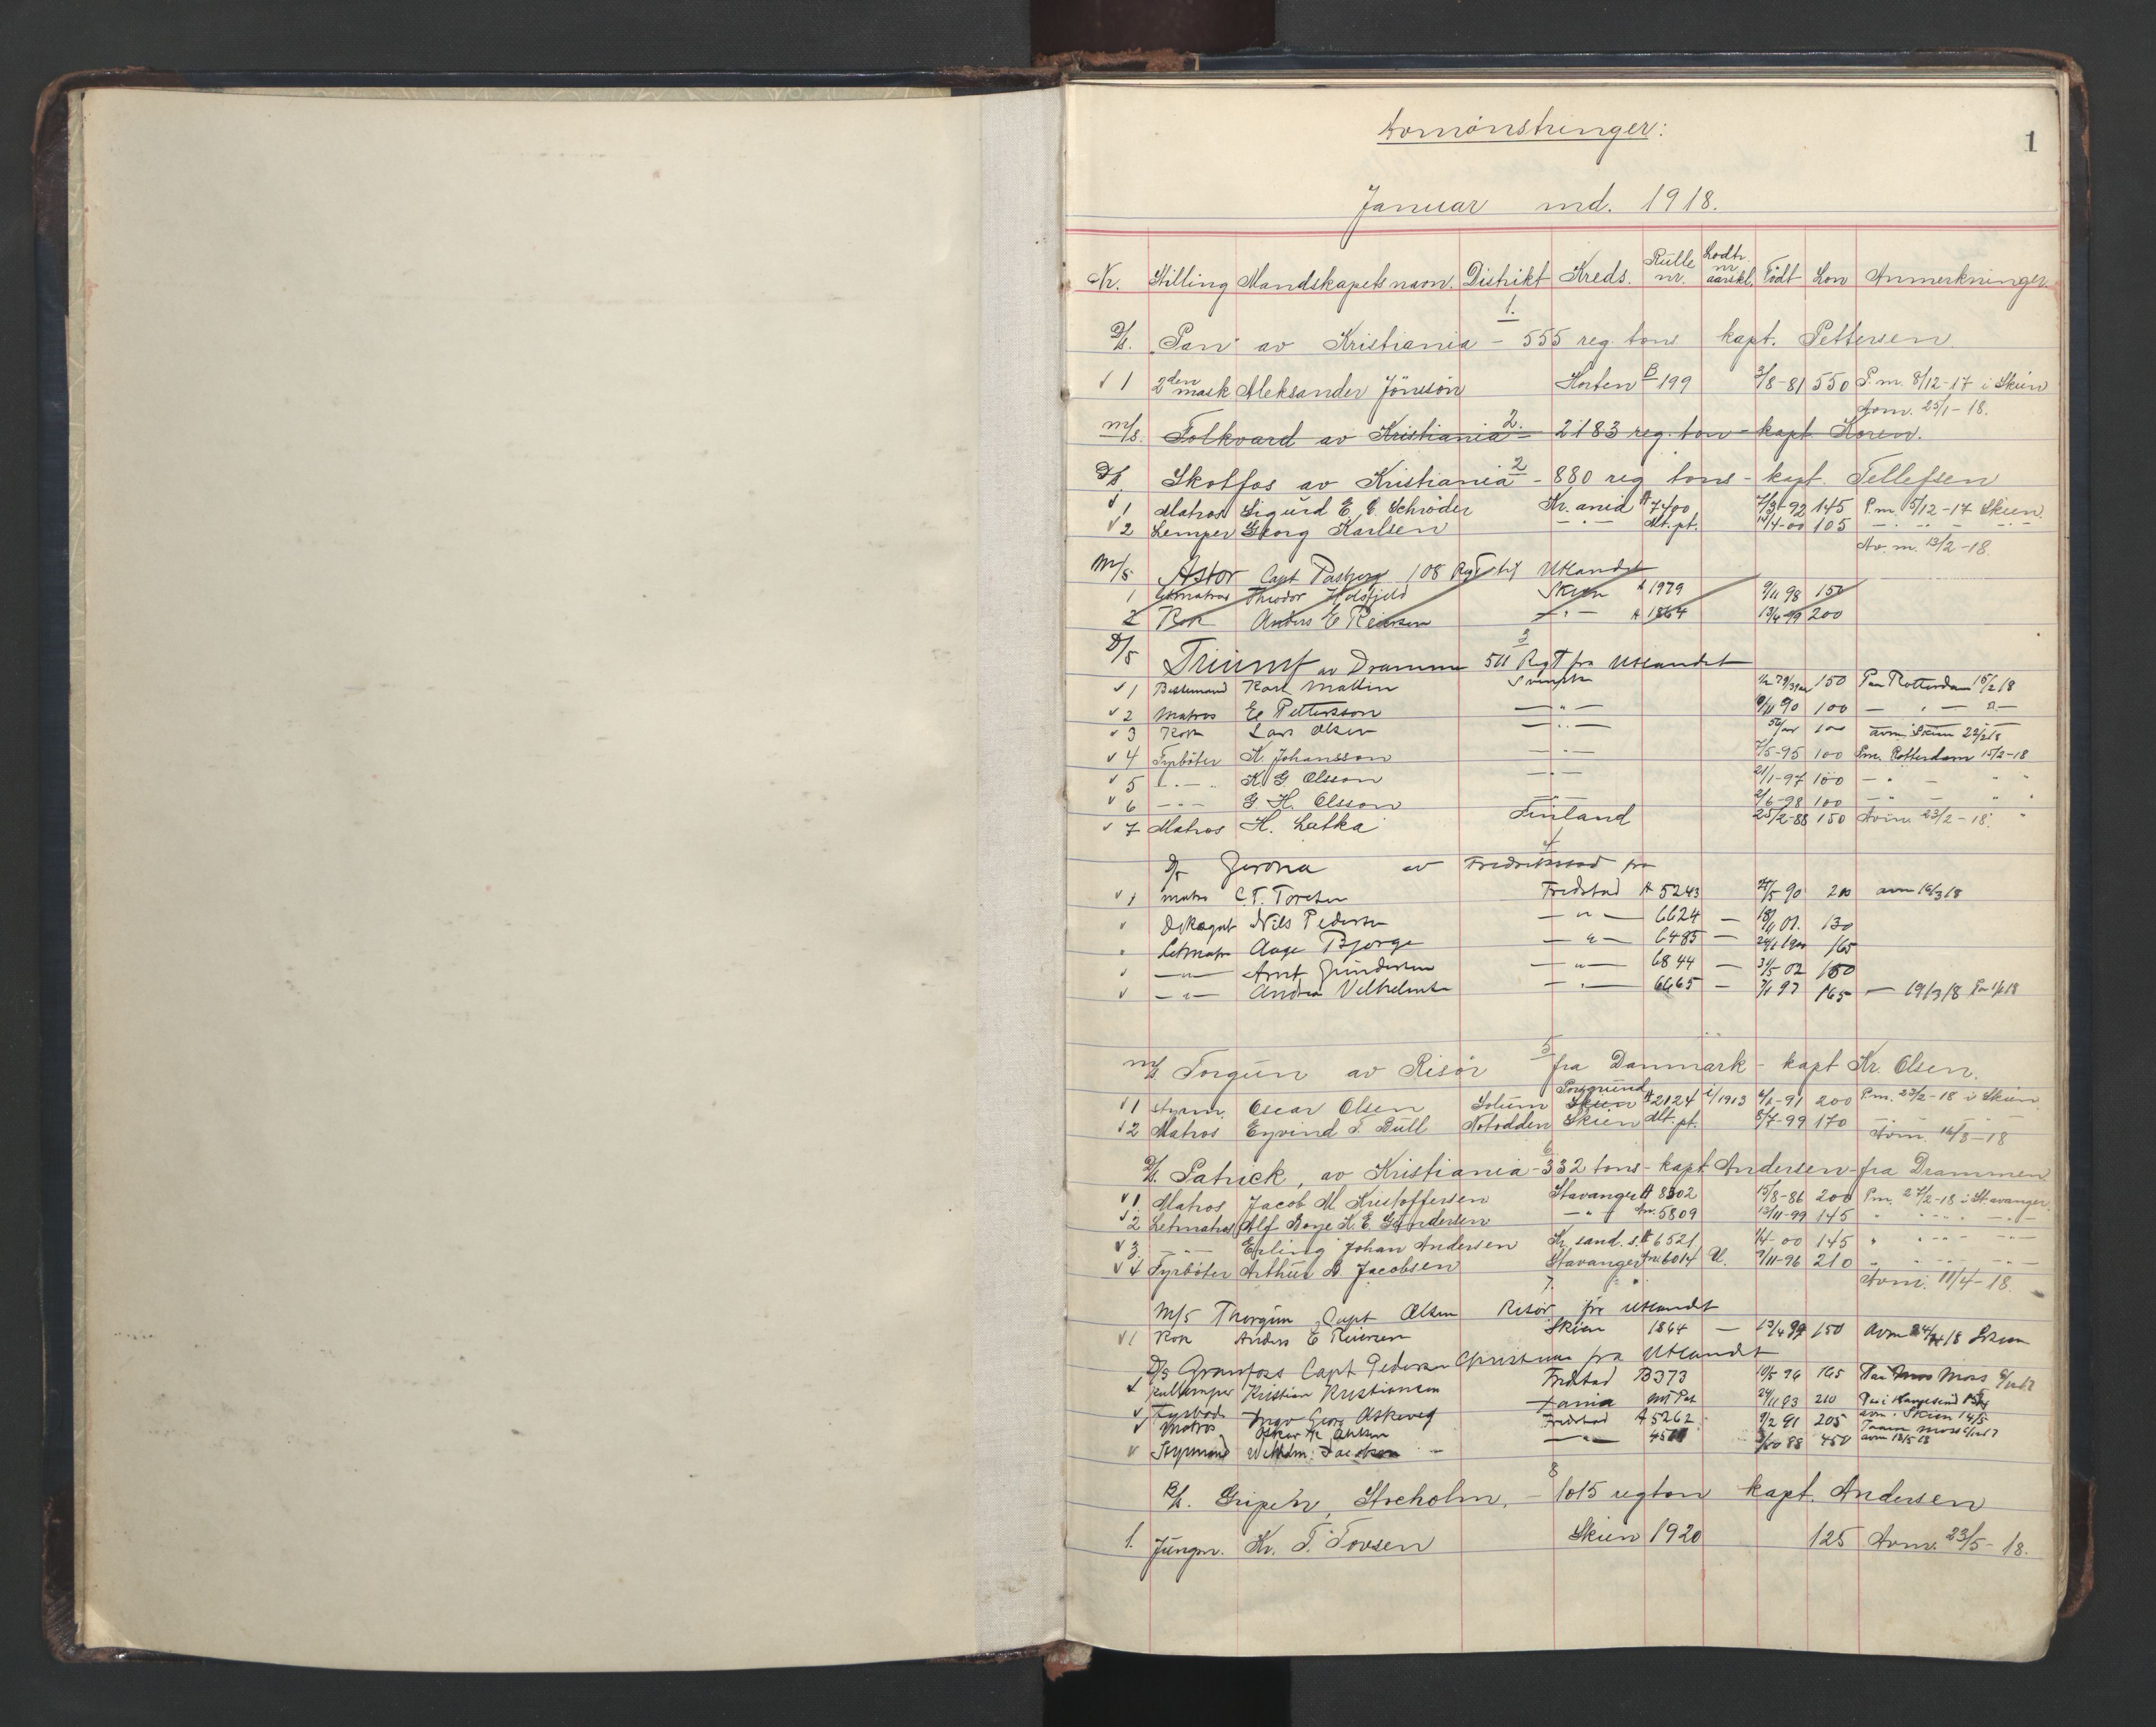 1
Avmønstringer:
Januar md. 1918.
Nr. Stilling Mandskapets navn. Distrikt Kreds. Rulle nr. Lodtr. nr aarskl. Født Løn Anmerkninger
1.
D/s. "Pan" av Kristiania - 555 reg. tons kapt. Pettersen.
1 2den mask Aleksander Jönsson Horten B 199 3/8-81 550 P.m. 8/12-17 i Skien
Avm. 25/1-18.
2.
m/s. Folkvard av Kristiania - 2183 reg. ton - kapt Koren.
2
D/s. Skotfos av Kristiania - 880 reg tons - kapt. Tellefsen
1 Matros Sigurd E. C. Schrøder Kr. ania A 7400 7/3-92 145 P.m. 5/12-17 Skien.
2 Lemper Georg Karlsen - " - Mt. pt. 14/4-00 105 - " - " - " -
Av. m. 13/2-18.
M/s Astor Capt 108 RegT til Utlandet
1 Letmatros Theodor Skien A 1979 9/11 98 150
2 Kok Anders E Reiersen - " - A 1864 13/4-99 200
3
D/s Triumf av Drammen 511 RegT fra Utlandet
1 Bestemand Karl 150 Paa Rotterdam 15/2 18
2 Matros Pettersson - " - 9/11 90 100 - " - " -
3 Kok Lars Olsen - " - 100 avm. i Skien 22/2 18
4 Fyrböter K. Johansson - " - 7/5-95 100 Pm. Rotterdam 15/2-18
5 - " - K. G. Olsson - " - 21/1-97 100 - " - " "
6 - " - G. H. Olsson - " - 2/6-98 100 - " - " "
7 Matros H. Latka Finland 25/2-88 150 Avm. 23/2-18. "
4
D/s Jerona av Fredrikstad fra
1 Matros C. T. Fredstad A 5243 90 200 avm 16/3 18
Nils Pedersen - " - 6624 - 01. 130
Letmatros Aage Bjørge - " - 6485 - 165
- " - Arnt Gundersen - " - 6844 - 31/5 02 150
- " - Andrea Vilhelmsen - " - 6665 - 7/1 97 165 - 19/3 18
5
m/s. Torgun av Risør fra Danmark - kapt Kr. Olsen.
1 Styrm. Oscar Olsen Solum Skien Porsgrund A 2124 i/1913 6/1-91 200 P.m. 23/2-18 i Skien
2 Matros Eyvind T. Bull Notodden Skien Mt. pt. 8/7-99 170 - " - " -
Avm. 16/3-18
6
D/s. Patrick, av Kristiania - 332 tons - kapt Andersen - fra Drammen
1. Matros Jacob M. Kristoffersen Stavanger A 8302 15/8-86 200 P.m. 27/2-18 i Stavanger.
2 Letmatros Alf Borge K. E. Gundersen - " - Am. 5809 13/11-99 145 " - " - " -
3. - " - Erling Johan Andersen Kr. sand. s. A 6521 1/4-00 145 " - " - " -
4 Fyrböter Arthur B Jacobsen Stavanger Am 6014 U. 9/11-96 210 " - " - " -
Avm. 11/4-18.
7.
M/s Thorgun Capt Olsen Risör fra Utlandet
1 Kok Anders E Reiersen Skien 1864 - 13/4 99 150 Avm 24/4 18 Skien
D/s Granfoss Capt Pedersen Christiania fra Utlandet
Kullemper Kristian Kristiansen Fredstad B 373 10/5 96 165 Paa Moss
Fyrbød. Georg Askeveg X ania Mt Pat 24/11 93 210 Paa i Haugesund
Matros Oskar Fredstad A 5262 9/2 91 205 avm. i Skien 14/5
Styrmand Wilhelm Jacobsen - " - 88 450 avm 18/5 18
8
D/s. Gripen, Stocholm. - 1015 regton kapt. Andersen
1. Jungm. Kr. T. Tovsen Skien 1920 125 Avm. 23/5-18.